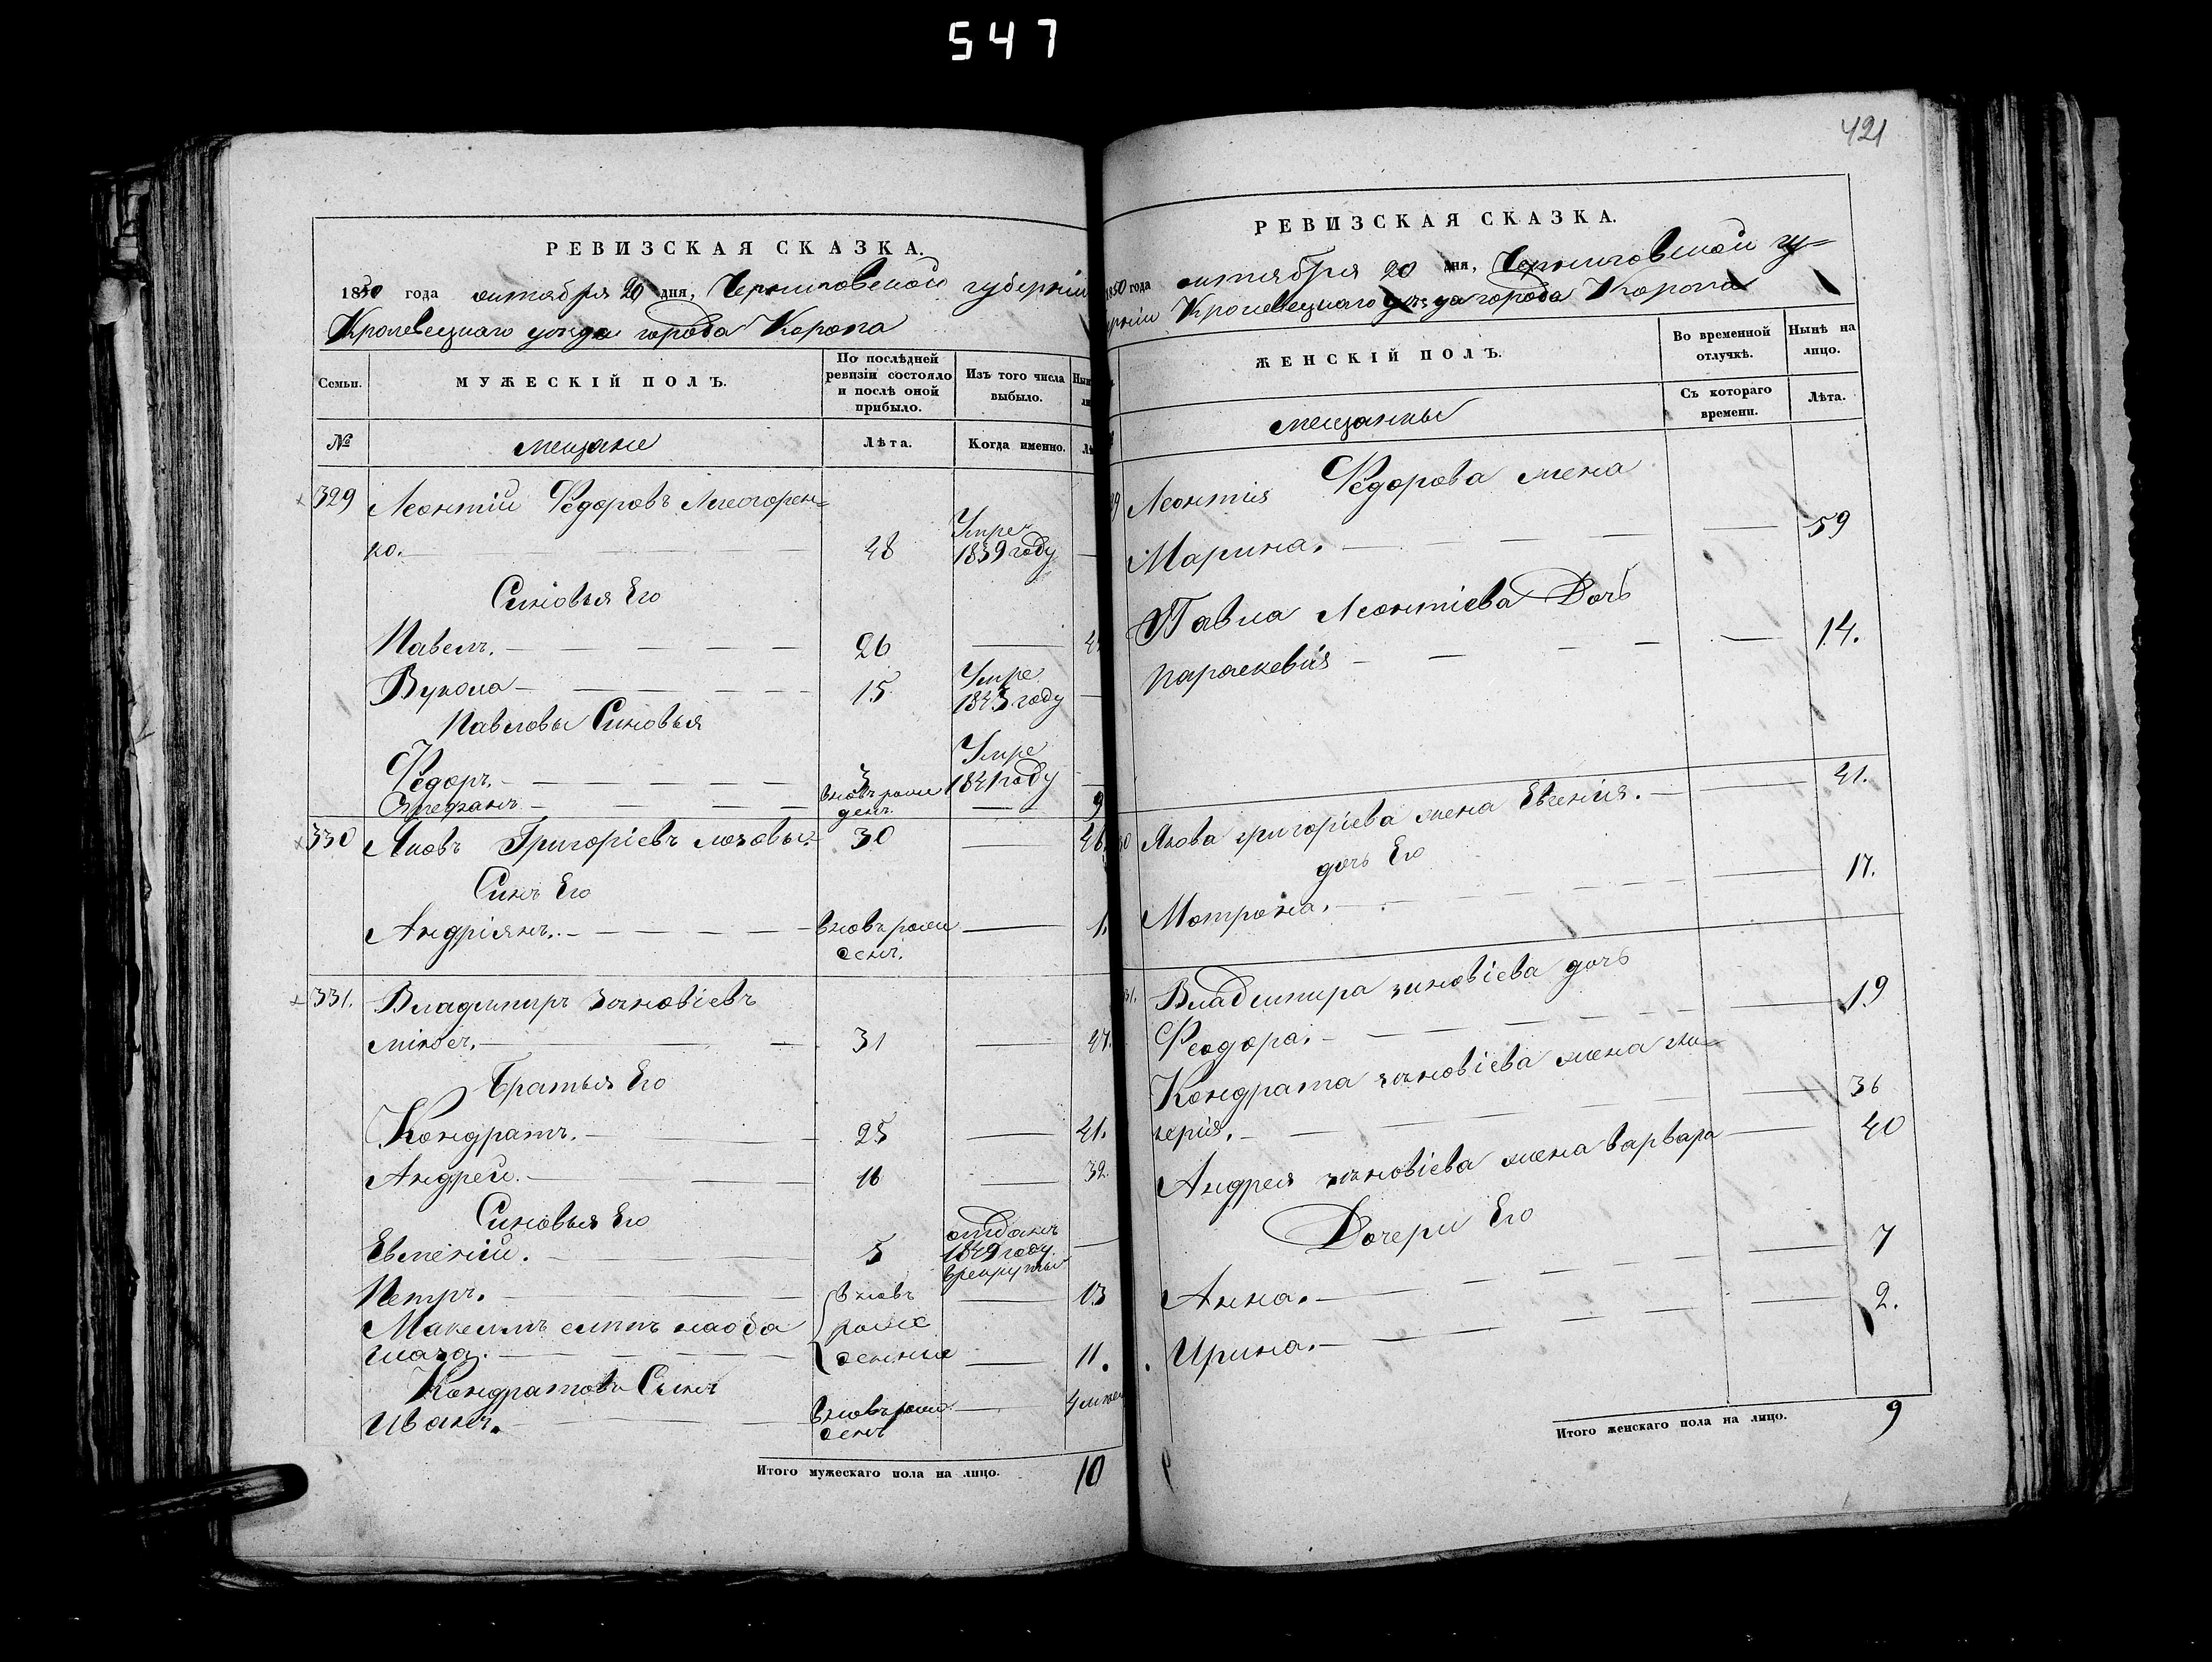 547
РЕВИЗСКАЯ СКАЗКА.
1850 года октября 20 дня, Черниговской губерніи
Кролевецкаго уезда города Коропа
Семьи.
МУЖЕСКІЙ ПОЛЪ.
По послѣдней ревизіи состояло и послѣ оной прибыло.
Изъ того числа выбыло.
№
мещане
Лѣта.
Когда именно.
329 Леонтій Федоровъ
ко. 48 Умре 1839 году
Синовья Его
Павелъ. 26
Вукола 15 Умре 1843 году
Павловы Синовья
Федоръ. 3 Умре 1841 году
Стефанъ вновь рожденъ. 9
330 Яковъ Григоріевъ 30 46
Синъ Его
Андріянъ. вновь рожденъ. 1.
331. Владимиръ Зиновіевъ
31 47.
Братья Его
Кондратъ. 25 41.
Андрей. 16 32.
Синовья Его
Евменій. 5 отданъ 1849 году в рекруты
Петръ. вновь 13
Максимъ слѣпъ на оба рож
глаза. денние 11.
Кондратовъ Сынъ
Иванъ. вновь рожденъ
Итого мужескаго пола на лицо. 10
421
РЕВИЗСКАЯ СКАЗКА.
1850 года октября 20 дня, Черниговской гу=
Кролевецкаго уезда города Коропа
ЖЕНСКІЙ ПОЛЪ.
Во временной отлучкѣ.
Нынѣ на лицо.
мещанки
Съ котораго времени.
Лѣта.
Леонтія Федорова жена
Марина. 59
Павла Леонтіева Дочь
Параскевія 14.
Якова Григоріева жена Евгенія. 41.
дочь Его
Мотрона. 17.
331. Владимира Зиновіева дочь
Феодора. 19
Кондрата Зиновіева жена Гли=
керія. 36
Андрея Зиновіева жена Варвара 40
Дочери Его
Анна. 7
Ирина. 2.
Итого женскаго пола на лицо. 9